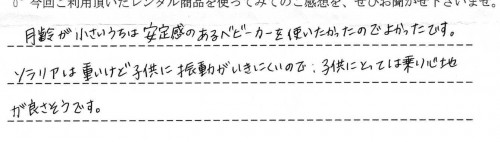 今回ご利用頂いたレンタル商品を使ってみてのご感想を、ぜひお聞かせ下さいませ。
月齢が小さいうちは安定感のあるベビーカーを使いたかったのでよかったです。
ソラリアは重いけど子供に振動がいきにくいので、子供にとっては乗り心地
が良さそうです。